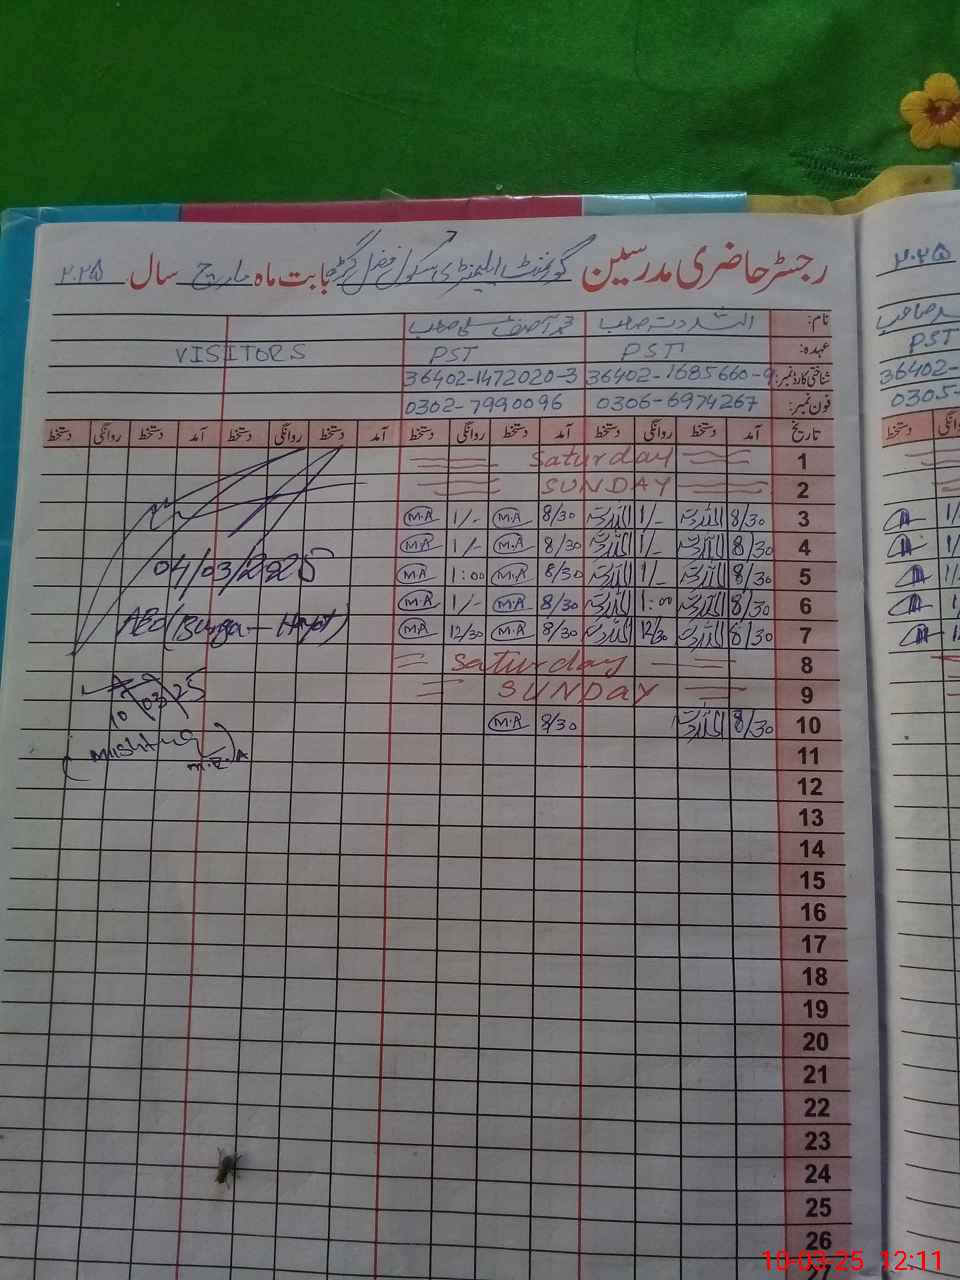 رجسٹر حاضری مدرسین گورنمنٹ ایلیمنٹری سکول فضل گڑھ بابت ماہ مارچ سال ۲۰۲۵
نام: اللہ دتہ صاحب محمد آصف علی صاحب
عہدہ: PST PST VISITORS
شناختی کارڈ نمبر: 36402-1685660-9 36402-1472020-3
فون نمبر: 0306-6974267 0302-7990096
تاریخ آمد دستخط روانگی دستخط آمد دستخط روانگی دستخط آمد دستخط روانگی دستخط آمد دستخط روانگی دستخط
1 Saturday
2 SUNDAY
3 8/30 اللہ دتہ 1/- اللہ دتہ 8/30 M.A 1/- M.A
4 8/30 اللہ دتہ 1/- اللہ دتہ 8/30 M.A 1/- M.A
5 8/30 اللہ دتہ 1/- اللہ دتہ 8/30 M.A 1:00 M.A
6 8/30 اللہ دتہ 1:00 اللہ دتہ 8/30 M.A 1/- M.A
7 8/30 اللہ دتہ 12/30 اللہ دتہ 8/30 M.A 12/30 M.A
8 Saturday
9 SUNDAY
10 8/30 اللہ دتہ 8/30 M.A
11
12
13
14
15
16
17
18
19
20
21
22
23
24
25
26
27
04/03/2025
AEO
10/03/25
(Mushtaq)
M.E.A
۲۰۲۵
صاحب
PST
36402-
0305-
دستخط
10-03-25 12:11